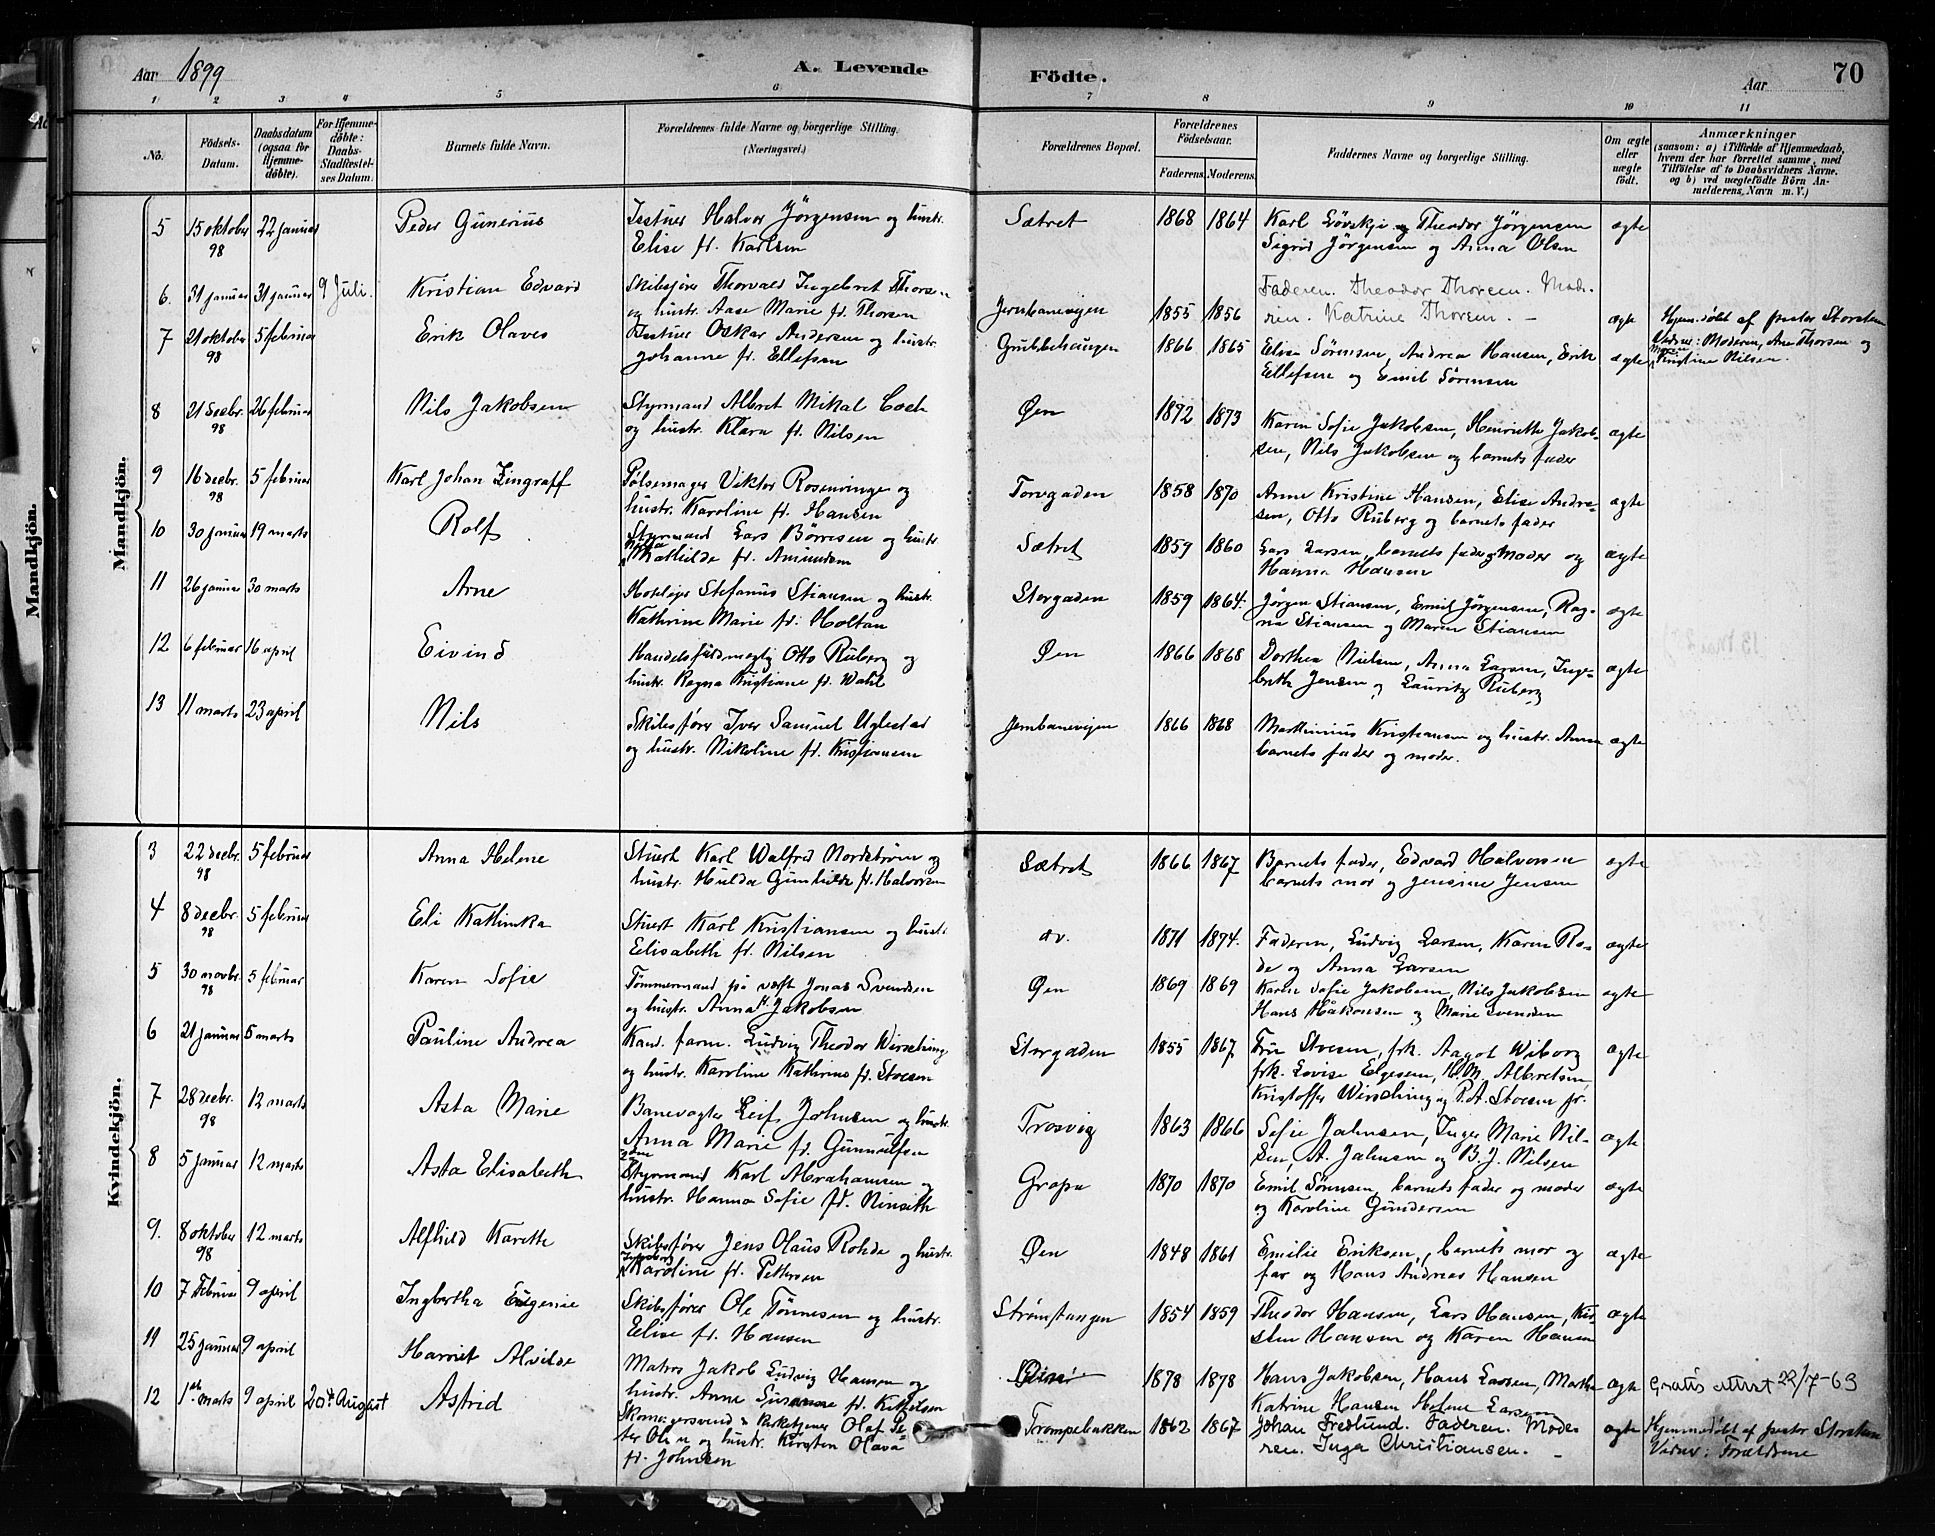 Aar 1899 A. Levende Födte. Aar 70
1 2 3 4 5 6 7 8 9 10 11
No. Födsels-Datum. Daabsdatum (ogsaa for Hjemmedöbte). For Hjemmedöbte: Daabs-Stadfæstelses Datum. Barnets fulde Navn. Forældrenes fulde Navne og borgerlige Stilling. (Næringsvei.) Forældrenes Bopæl. Forældrenes Födselsaar. Faderens. Moderens. Faddernes Navne og borgerlige Stilling. Om ægte eller uægte födt. Anmærkninger (saasom: a) i Tilfælde af Hjemmedaab, hvem der har forrettet samme, med Tilföielse af to Daabsvidners Navne. og b) ved uægtefödte Börn Anmelderens, Navn m. V.)
Mandkjön.
5 15 oktober 98 22 januar Peder Gunerius Halvor Jörgensen og hustr. Sætret 1868 1864 Karl Lövskje og Theodor Jörgensen ægte
Elise f. Karlsen Sigrid Jörgensen og Anna Olsen
6. 31 januar 31 januar 9 Juli. Kristian Edvard Skibsfører Thorvald Ingebret Thorsen Faderen. Theodor Thorsen. Mode-
og hustr. Aase Marie f. Thorsen Jernbaneveien 1855 1856 ren. Katrine Thorsen. — ægte Hjem.døbt af pastor Storsten
7 21 oktober 98 5 februar Erik Olaves Oskar Andersen og hustr. Grubbehaugen 1866 1865 Elise Sørensen, Andrea Hansen, Erik ægte Vidner: Moderen, Ane Thorsen og
Johanne f. Ellefsen Ellefsen og Emil Sørensen Kristine Nilsen.
8 21 decbr. 98 26 februar Nils Jakobsen Styrmand Albret Mikal Coch Øen 1872 1873 Karen Sofie Jakobsen, Henriette Jakob- ægte
og hustr. Klara f. Nilsen sen, Nils Jakobsen og barnets fader
9 16 decbr. 98 5 februar Karl Johan Zingraff Pølsemager Viktor Rosenvinge og Torvgaden 1858 1870 Anne Kristine Hansen, Elise Andre- ægte
hustr. Karoline f. Hansen sen, Otto Ruberg og barnets fader
10 30 januar 19 marts Rolf Styrmand Lars Börresen og hustr. Sætret 1859 1860 Lars Larsen, barnets fader og moder og ægte
Mathilde f. Amundsen Hanna Hansen
11 26 januar 30 marts Arne Stefanus Stiansen og hustr. Storgaden 1859 1864. Jörgen Stiansen, Emil Jörgensen, Rag- ægte
Kathrine Marie f. Holtan na Stiansen og Maren Stiansen
12 6 februar 16 april Eivind Handelsfuldmægtig Otto Ruberg og Øen 1866 1868 Dorthea Nielsen, Anna Larsen, Inge- ægte
hustr. Ragna Kristiane f. Wahl breth Jensen og Lauritz Ruberg
13 11 marts 23 april Nils Skibsfører Iver Samuel Uglestad Jernbaneveien 1866 1868 Marthinius Kristiansen og hustr. Anna ægte
og hustr. Nikoline f. Kristiansen barnets fader og moder.
Kvindekjön.
3 22 decbr. 98 5 februar Anna Helene Stuert Karl Walfrid Nordstrøm og Sætret 1866 1867 Barnets fader, Edvard Halvorsen ægte
hustr. Hulda Gunhilde f. Halvorsen barnets mor og Jensine Jensen
4 8 decbr. 98 5 februar Eli Kathinka Stuert Karl Kristiansen og hustr. do. 1871 1874. Faderen, Ludvig Larsen, Karen Ro- ægte
Elisabeth f. Nilsen de og Anna Larsen
5 30 novbr. 98 5 februar Karen Sofie Tömmermand på verft Jonas Svendsen Øen 1869 1869 Karen Sofie Jakobsen, Nils Jakobsen ægte
og hustr. Anna f. Jakobsen Hans Håkonsen og Marie Svendsen
6 21 januar 5 marts Pauline Andrea Kand. farm. Ludvig Theodor Wirsching Storgaden 1855 1867 Fru Stoesen, frk. Aagot Wiborg ægte
og hustr. Karoline Kathrine f. Stoesen frk. Lovise Elgesem, H.M. Albretsen,
Kristoffer Wirsching og P.A. Stoesen jr.
7 28 decbr. 98 12 marts Asta Marie Banevogter Leif Johnsen og hustr. Trosvig 1863 1866 Sofie Jahnsen, Inger Marie Nil- ægte
Anna Marie f. Gunnulfsen sen, A. Jahnsen og B.J. Nilsen
8 5 januar 12 marts Asta Elisabeth Styrmand Karl Abrahamsen og Grapa 1870 1870 Emil Sörensen, barnets fader og moder ægte
hustr. Hanna Sofie f. Rinseth og Karoline Gundersen
9. 8 oktober 98 12 marts Alfhild Karethe Skibsfører Jens Olaus Rohde og hustr. Øen 1848 1861 Emilie Eriksen, barnets mor og ægte
Ingeborg Karoline f. Pettersen far og Hans Andreas Hansen
10 7 februar 9 april Ingbertha Eugenie Skibsfører Ole Tönnesen og hustr. Strømstangen 1854 1859 Theodor Hansen, Lars Hansen, Kir- ægte
Elise f. Hansen sten Hansen og Karen Hansen
11 25 januar 9 april Harriet Alvilde Matros Jakob Ludvig Hansen og 1878 1878 Hans Jakobsen, Hans Larsen, Marthe ægte Gratis attest 22/7-63
hustr. Anne Susanne f. Kittelsen Katrine Hansen Helene Larsen
12 1ste marts 9 april 20de August Astrid Skomagersvend & Kirketjener Olaf Pe- Trompebakken 1862 1867 Johan Fredlund. Faderen. Mode- ægte Hjemmedøbt af pastor Storsten
ter Olsen og hustr. Kirsten Olava ren. Inga Christiansen. — Vidner: Forældrene
f. Johnsen